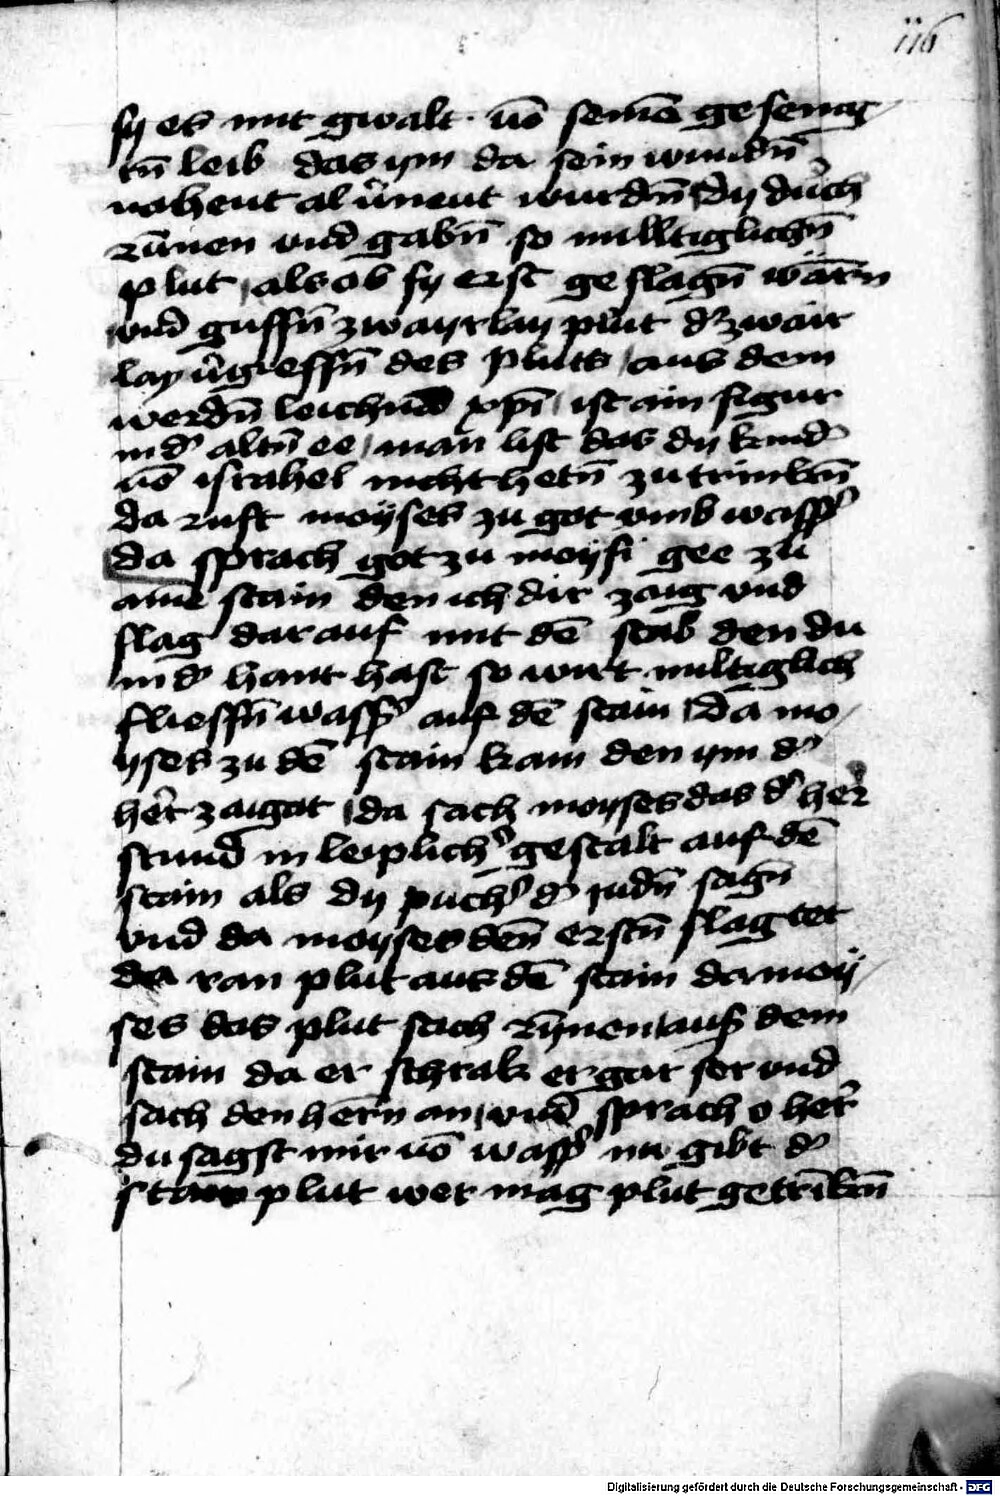 116
sy es mit gwalt · vō seinē gesenig
tn̄ leib das ym da sein wundn̄
nahent al v̈neut wurdn̄ dy durch
runnen vnd gabn̄ so milltiglichn̄
plut als ob sy erst geslagn̄ wärn
vnd gussn̄ zwayrlay plut dˀ zwair
lay v̈giessn̄ des pluts aus dem
werdn̄ leichnā xp̄i ist ain figur
in dˀ altn̄ ee man list das dy kindˀ
vō israhel nicht hetn̄ zu trinkn̄
da ruft moyses zu got vmb wassˀ
da sprach got zu moysi gee zu
aime stain den ich dir zaig vnd
slag darauf mit dē stab den du
in dˀ hant hast so wirt miltiglich
fliessn̄ wassˀ auf dē stain da mo
yses zu dē stain kam den ym dˀ
her̄ zaigat da sach moyses das dˀ her̄
stund in leiplichˀ gestalt auf dē
stain als dy puchˀ dˀ iudn̄ sagn̄
vnd da moyses den̄ erstn̄ slag tet
da ran plut aus dē stain da moy
ses das plut sach rynen aus dem
stain da er schrak er gar ser vnd
sach den hern an vnd sprach o her̄
du sagst mir vō wassˀ nu gibt dˀ
stain plut wer mag plut getrīkn̄
Digitalisierung gefördert durch die Deutsche Forschungsgemeinschaft - DFG